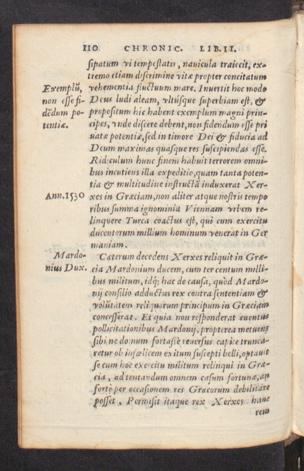 110 CHRONIC. LIB. II.
sipatum vi tempestatis, navicula traiecit, ex-
tremo etiam discrimine vitæ propter concitatum
Exemplũ, vehementia fluctuum mare. Invertit hoc modo
non esse fi- Deus ludi aleam, vltúsque superbiam est, &
dẽdum po- propositum hic habent exemplum magni prin-
tentiæ. cipes, vnde discere debent, non fidendum esse pri
uatæ potentiæ, sed in timore Dei & fiducia ad
Deum maximas quasque res suscipiendas esse.
Ridiculum hunc finem habuit terrorem omni-
bus incutiens illa expeditio, quam tanta poten-
tia & multitudine instructã induxerat Xer-
Ann. 1530 xes in Græciam, non aliter atque nostris tempo
ribus summa ignominia Viennam vrbem re-
linquere Turca coactus est, qui cum exercitu
ducentorum millium hominum venerat in Ger
maniam.
Mardo- Cæterum decedens Xerxes reliquit in Græ-
nius Dux. cia Mardonium ducem, cum ter centum milli-
bus militum, idq; hac de causa, quòd Mardo-
nij consilio adductus rex contra sententiam &
volũtatem reliquorum principum in Græciam
concesserat. Et quia non respōnderat euentus
pollicitationibus Mardonij, propterea metuens
sibi, ne domum fortasse reuersus capite trunca-
retur ob infœlicem exitum suscepti belli, optauit
se cum hoc exercitu militum relinqui in Græ-
cia, ad tentandum omnem casum fortunæ, an
fortè per occasionem res Græcorum debilitare
posset. Permisit itaque rex Xerxes hanc
rem